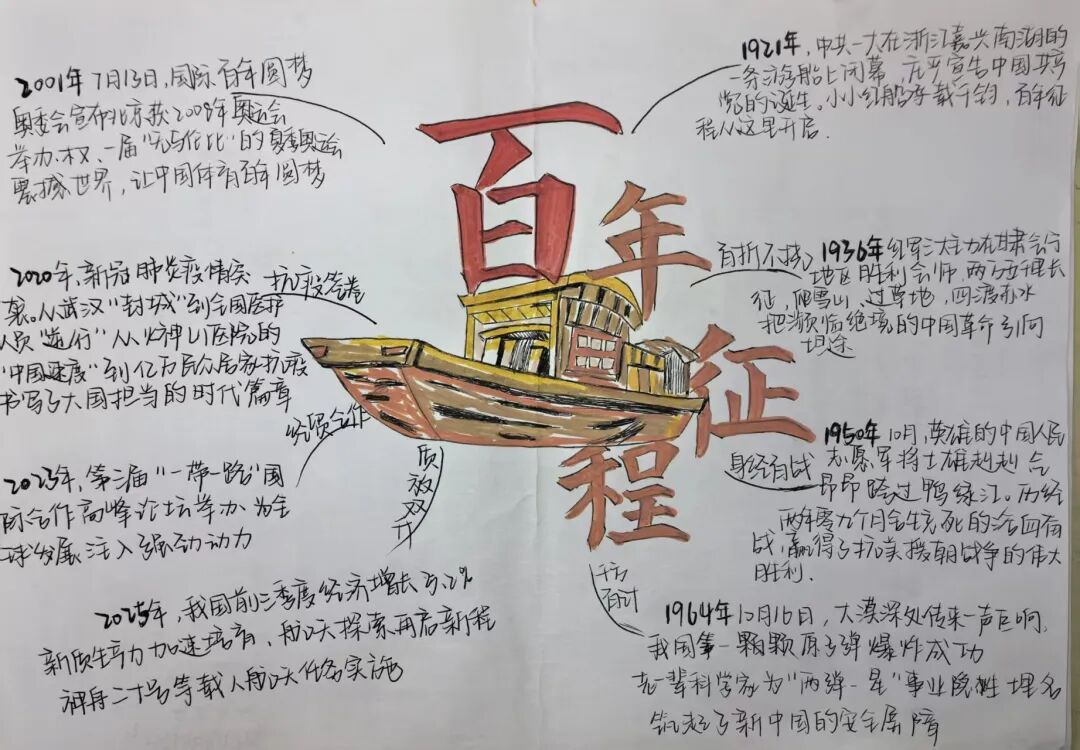 百年征程
1921年，中共一大在浙江嘉兴南湖的
一条游船上闭幕，庄严宣告中国共产
党的诞生。小小红船承载千钧，百年征
程从这里开启.
百折不挠
1936年红军三大主力在甘肃会宁
地区胜利会师，两万五千里长
征，爬雪山，过草地，四渡赤水
把濒临绝境的中国革命引向
坦途
身经百战
1950年10月，英雄的中国人民
志愿军将士雄赳赳 气
昂昂跨过鸭绿江。历经
两年零九个月舍生死的浴血奋
战，赢得了抗美援朝战争的伟大
胜利.
千方
百计
1964年10月16日，大漠深处传来一声巨响，
我国第一颗颗原子弹爆炸成功
老一辈科学家为"两弹一星"事业隐姓埋名
筑起了新中国的安全屏障
2001年7月13日，国际百年圆梦
奥委会宣布北京获2008年奥运会
举办权、一届"无与伦比"的夏季奥运会
震撼世界，让中国体育百年圆梦
抗疫答卷
2020年，新冠肺炎疫情突
袭。从武汉"封城"到全国医护
人员"逆行"从火神山医院的
"中国速度"到亿万民众居家抗疫
书写了大国担当的时代篇章
经贸合作
2023年，第三届"一带一路"国
际合作高峰论坛举办 为全
球发展注入强劲动力
质放双升
2025年，我国前三季度经济增长5.2%
新质生产力加速培育，航天探索再启新程
神舟二十号等载人航天任务实施